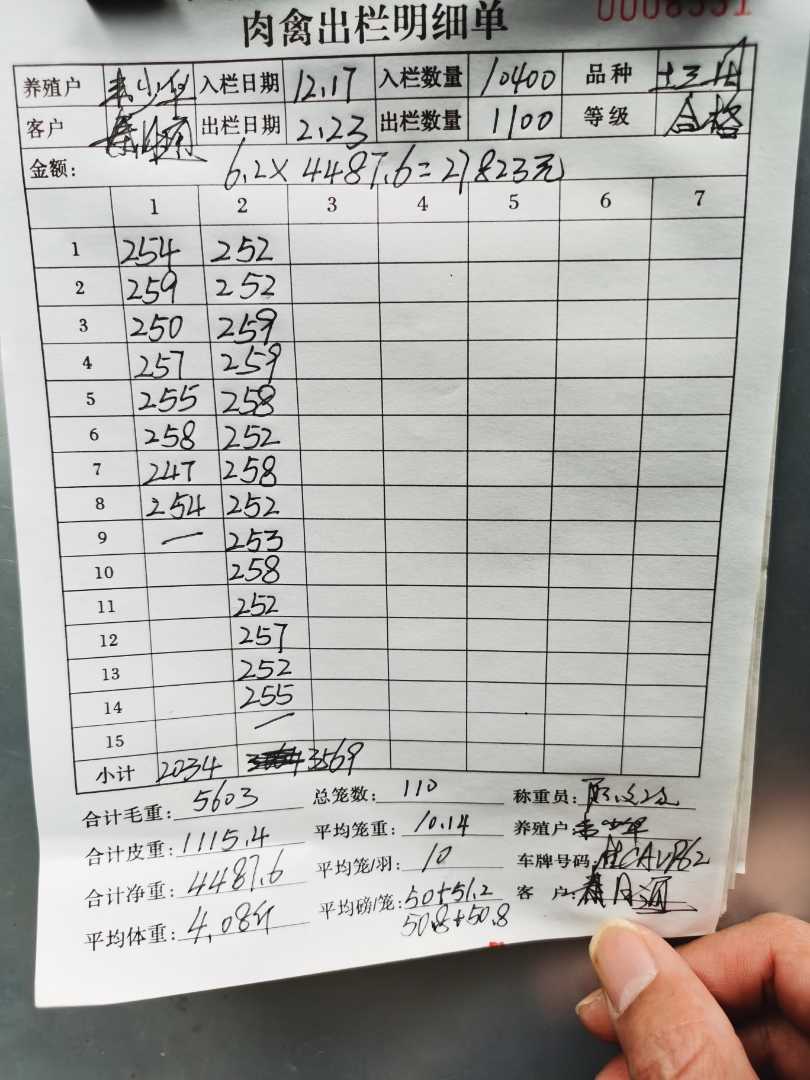 肉禽出栏明细单
养殖户 入栏日期 12.17 入栏数量 10400 品种
客户 出栏日期 2.23 出栏数量 1100 等级 合格
金额: 6.2×4487.6=27823元
1 2 3 4 5 6 7
1 254 252
2 259 252
3 250 259
4 257 259
5 255 258
6 258 252
7 247 258
8 254 252
9 — 253
10 258
11 252
12 257
13 252
14 255
15 —
小计 2034 3569
合计毛重: 5603 总笼数: 110 称重员:
合计皮重: 1115.4 平均笼重: 10.14 养殖户:
合计净重: 4487.6 平均笼/羽: 10 车牌号码:
平均体重: 4.08斤 平均磅/笼: 50+51.2 客户:
50.8+50.8